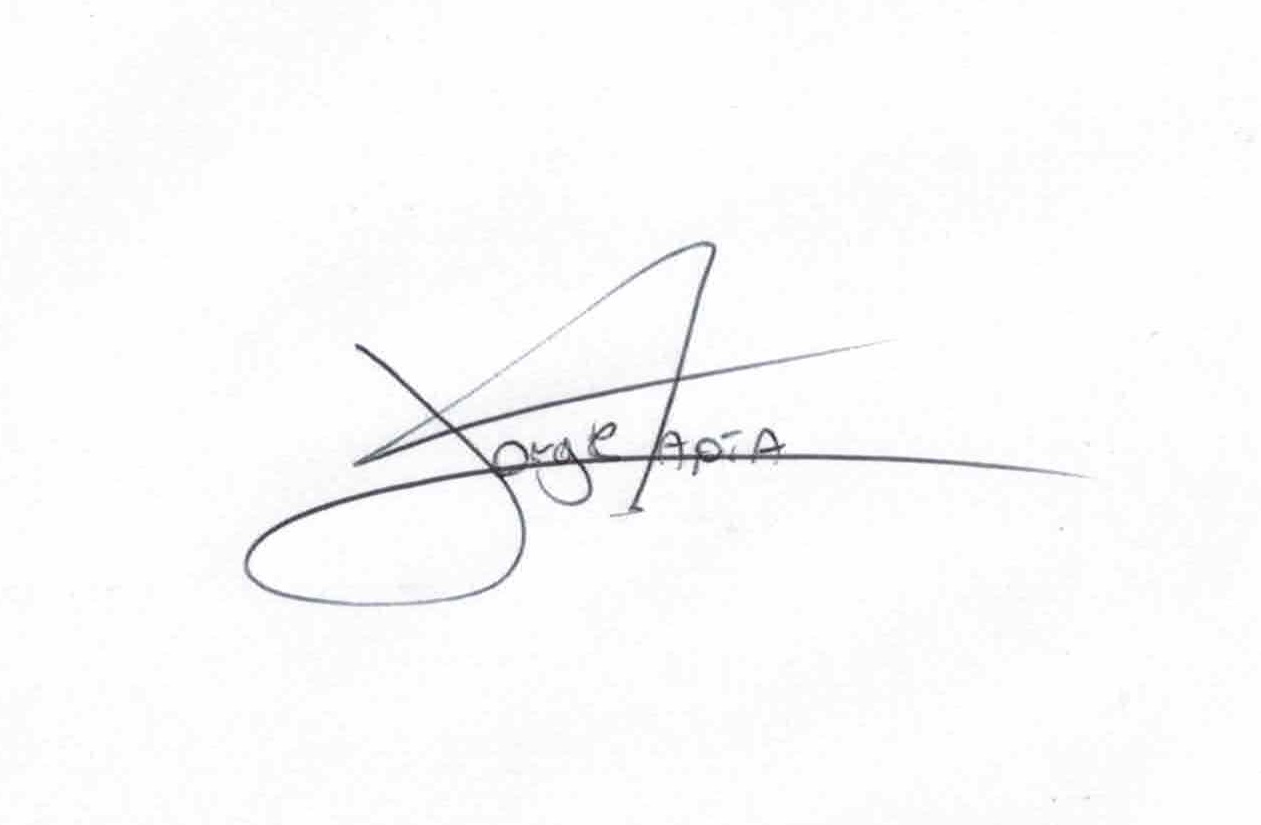 Jorge ApiA